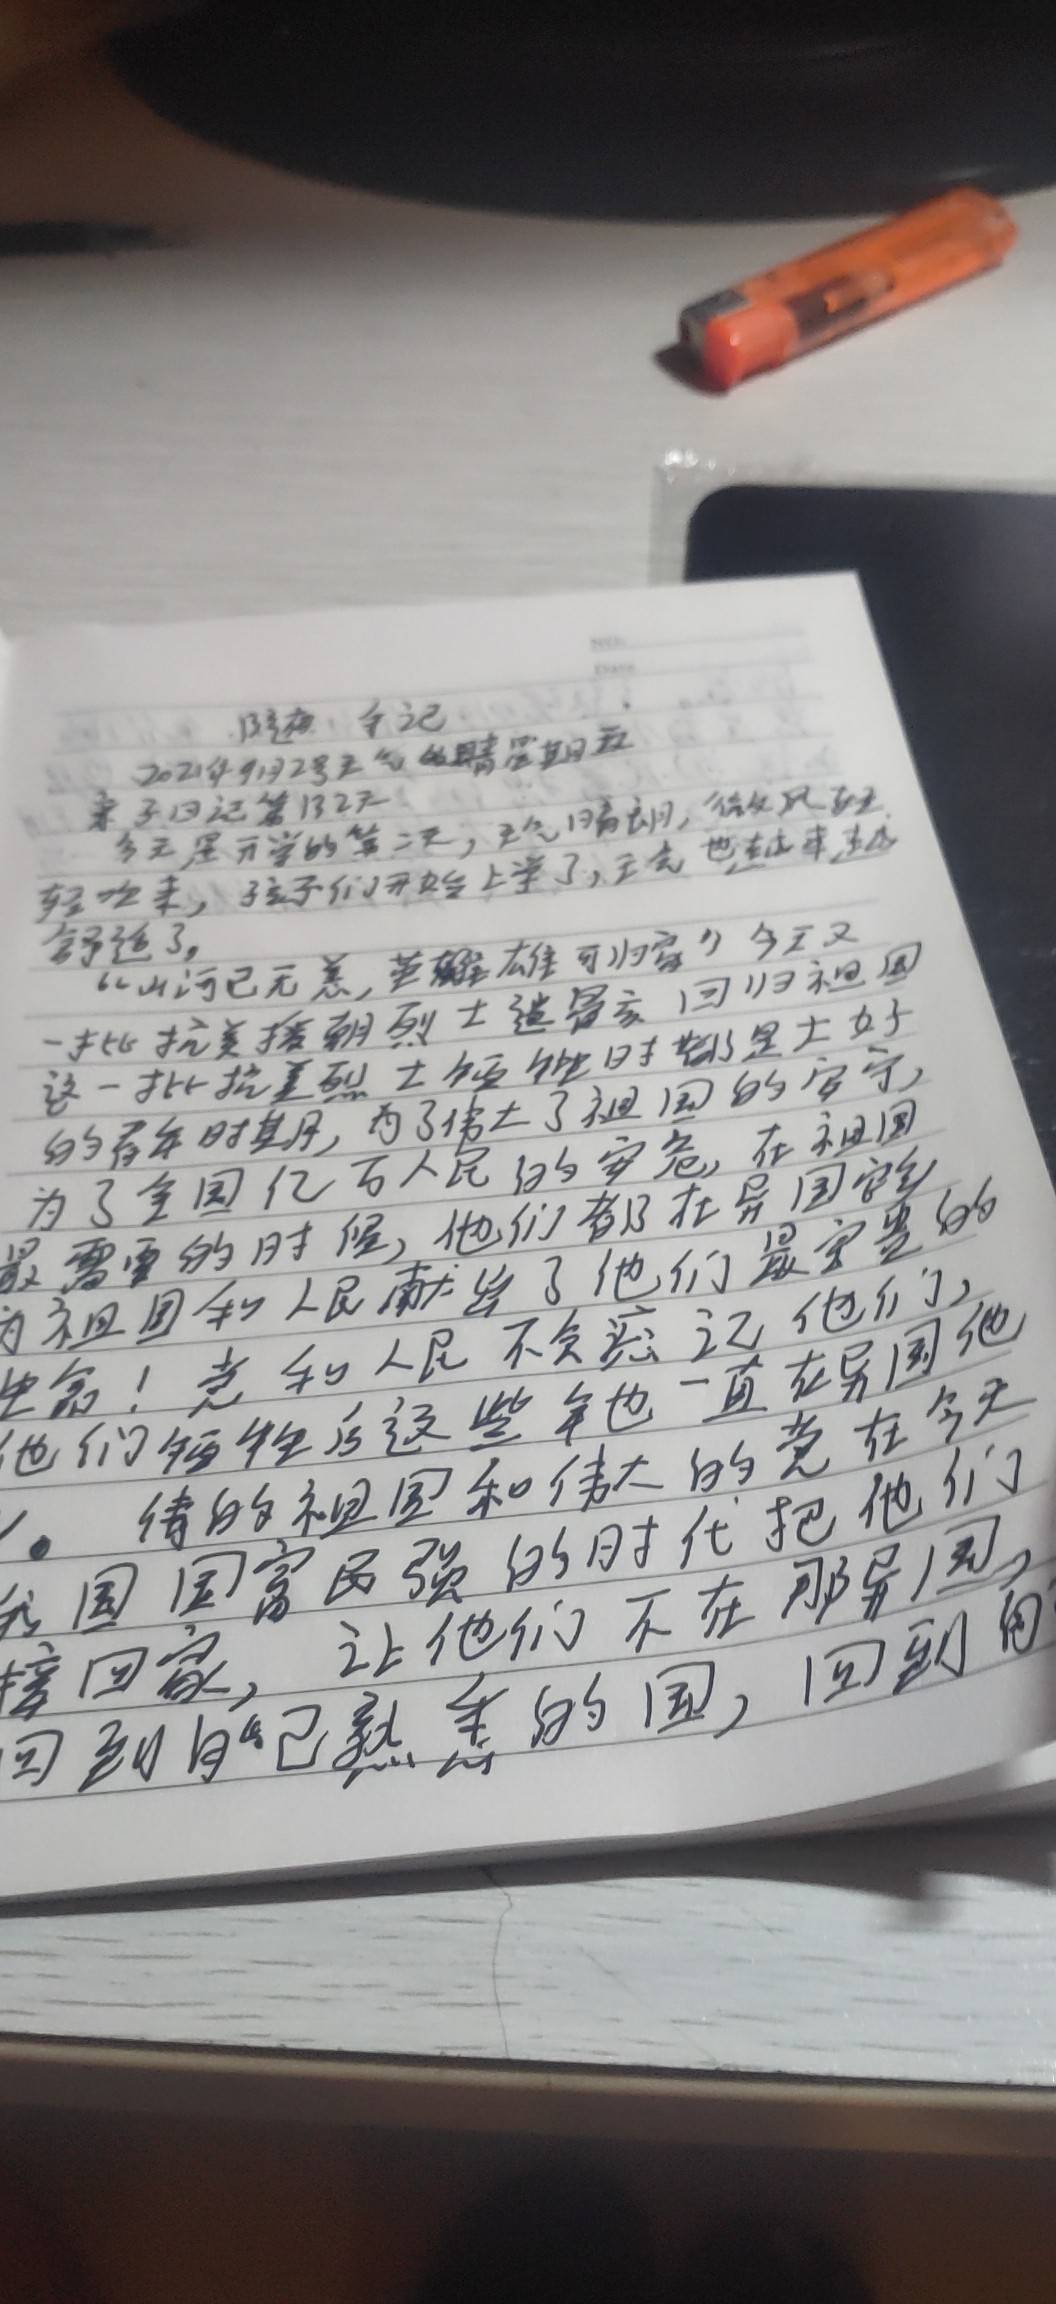 NO.
Date
随想 手记
2021年9月2号天气 晴星期五
亲子日记第132天
今天是开学的第二天，天气晴朗，微风轻
轻吹来，孩子们开始上学了，天气也越来越
舒适了。
“山河已无恙，英雄可归家”今天又
一批抗美援朝烈士遗骨家回归祖国
这一批抗美烈士牺牲时都是大好
的青年时期，为了伟大了祖国的安宁，
为了全国亿万人民的安危，在祖国
最需要的时候，他们都在异国
为祖国和人民献出了他们最宝贵的
生命！党和人民不会忘记他们，
他们牺牲后这些年也一直在异国他
。 伟的祖国和伟大的党在今天
我国国富民强的时代把他们
接回家，让他们不在那异国，
回到自己熟悉的国，回到自